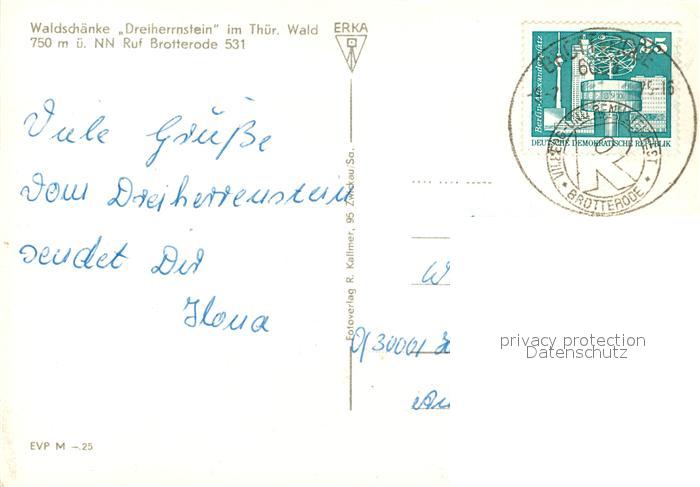 Waldschänke „Dreiherrnstein" im Thür. Wald
750 m ü. NN Ruf Brotterode 531
ERKA
Viele Grüße
vom Dreiherrenstein
sendet Dir
Ilona
EVP M –.25
Fotoverlag R. Kallmer, 95 Zwickau/Sa.
25
Berlin-Alexanderplatz
DEUTSCHE DEMOKRATISCHE REPUBLIK
BROTTERODE
W
privacy protection
Datenschutz